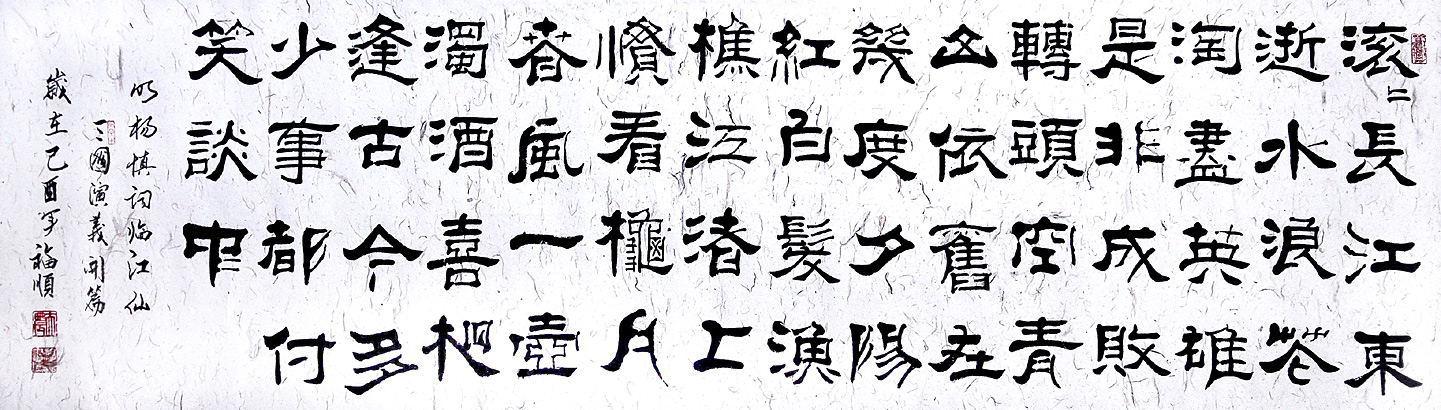 滚〻長江東
逝水浪花
淘盡英雄
是非成敗
轉頭空青
山依舊在
幾度夕陽
紅白髮漁
樵江渚上
慣看龝月
春風一壺
濁酒喜相
逢古今多
少事都付
笑談中
明楊慎詞臨江仙
三國演義開篇
歲在己酉年福順